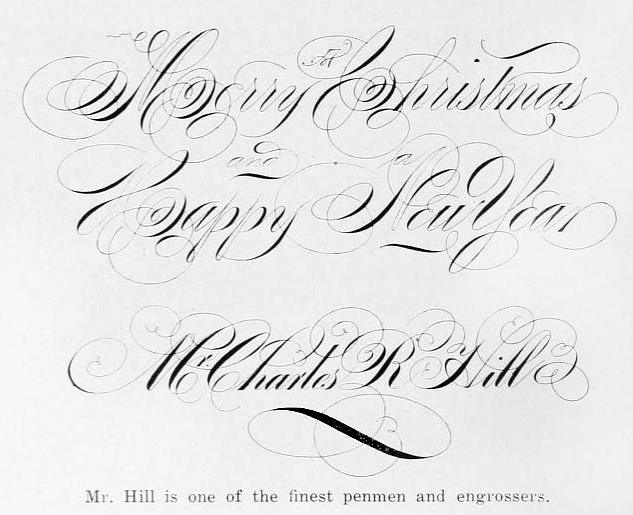 Merry Christmas
and
Happy New Year
Mr. Charles R Hill
Mr. Hill is one of the finest penmen and engrossers.